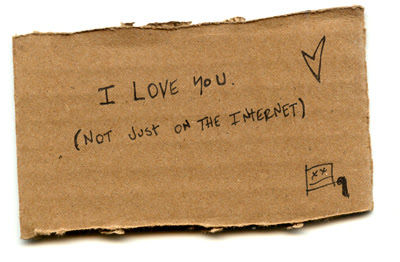 I LOVE YOU.
(NOT JUST ON THE INTERNET)